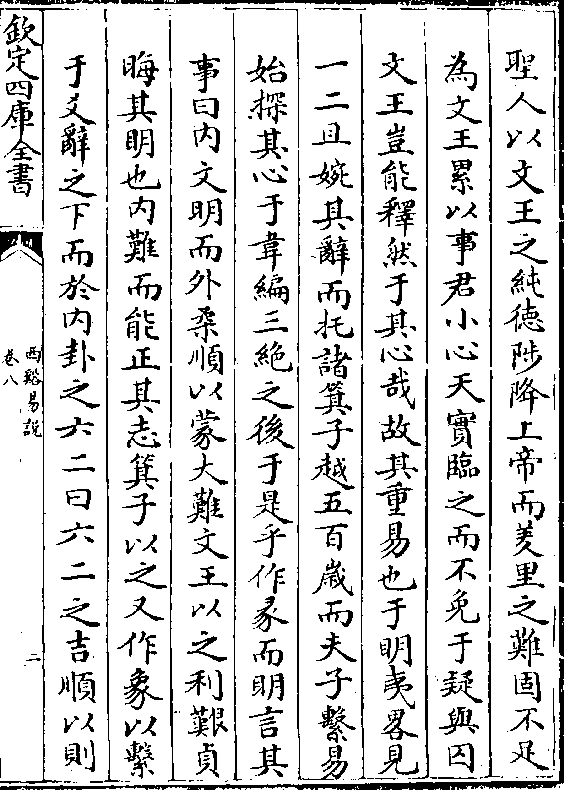 聖人以文王之純德陟降上帝而羑里之難固不足
為文王累以事君小心天實臨之而不免于疑與囚
文王豈能釋然于其心哉故其重易也于明夷畧見
一二且婉其辭而托諸箕子越五百歳而夫子繫易
始探其心于韋編三絶之後于是乎作彖而明言其
事曰内文明而外柔順以蒙大難文王以之利艱貞
晦其明也内難而能正其志箕子以之又作象以繫
于爻辭之下而於内卦之六二曰六二之吉順以則
欽定四庫全書
西谿易説
卷八
二